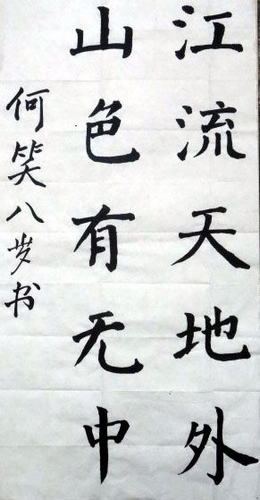 江流天地外
山色有无中
何笑八岁书